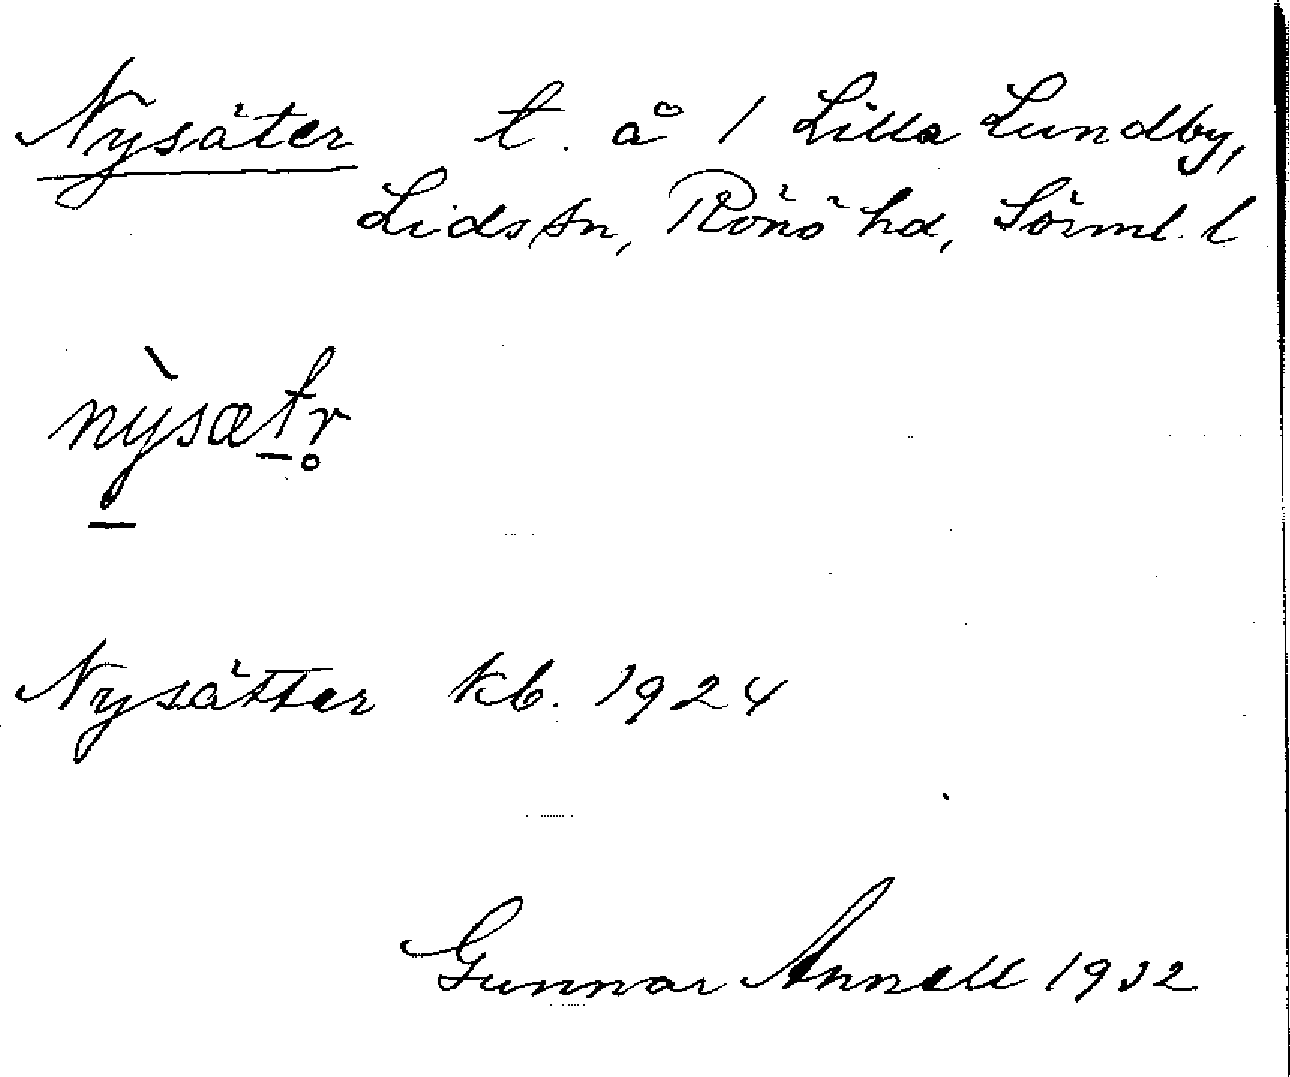 Nysäter t. å 1 Lilla Lundby,
Lids sn, Rönö hd, Sörml. l
nỳsætr̥
Nysätter kb. 1924
Gunnar Annell 1932